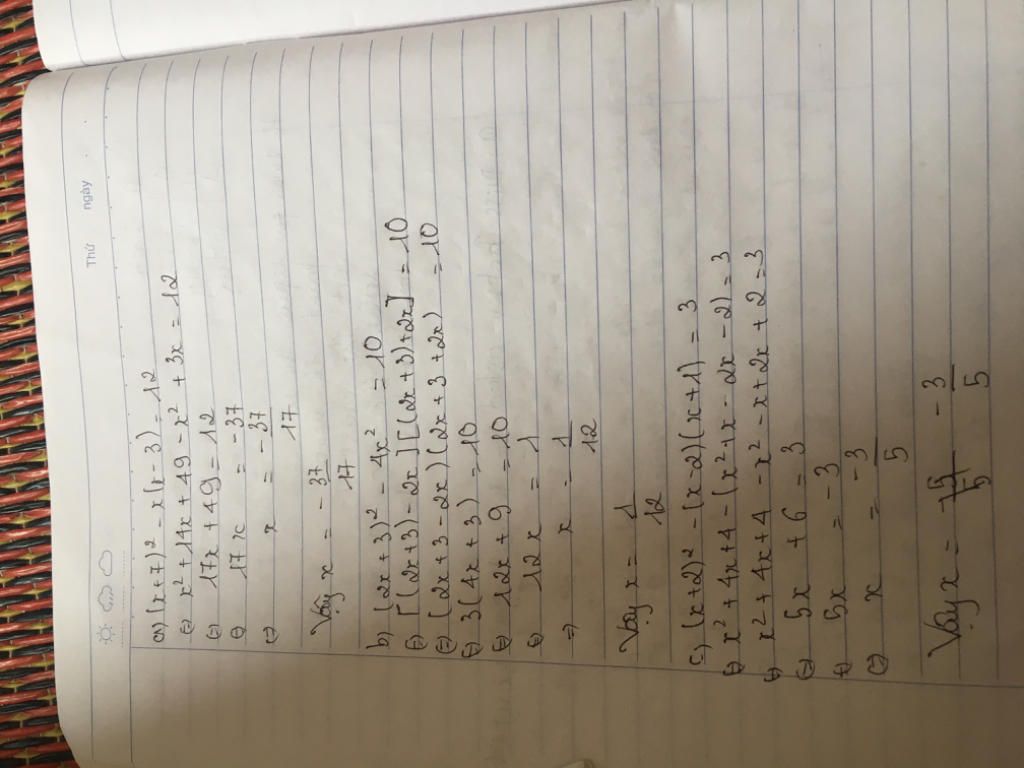 Thứ ngày
a) (x+7)² - x(x-3) = 12
⇔ x² + 14x + 49 - x² + 3x = 12
⇔ 17x + 49 = 12
⇔ 17x = -37
⇔ x = -37/17
Vậy x = -37/17
b) (2x+3)² - 4x² = 10
⇔ [(2x+3) - 2x][(2x+3)+2x] = 10
⇔ (2x+3-2x)(2x+3+2x) = 10
⇔ 3(4x+3) = 10
⇔ 12x + 9 = 10
⇔ 12x = 1
⇒ x = 1/12
Vậy x = 1/12
c) (x+2)² - (x-2)(x+1) = 3
⇔ x² + 4x + 4 - (x² + x - 2x - 2) = 3
⇔ x² + 4x + 4 - x² - x + 2x + 2 = 3
⇔ 5x + 6 = 3
⇔ 5x = -3
⇔ x = -3/5
Vậy x = -3/5